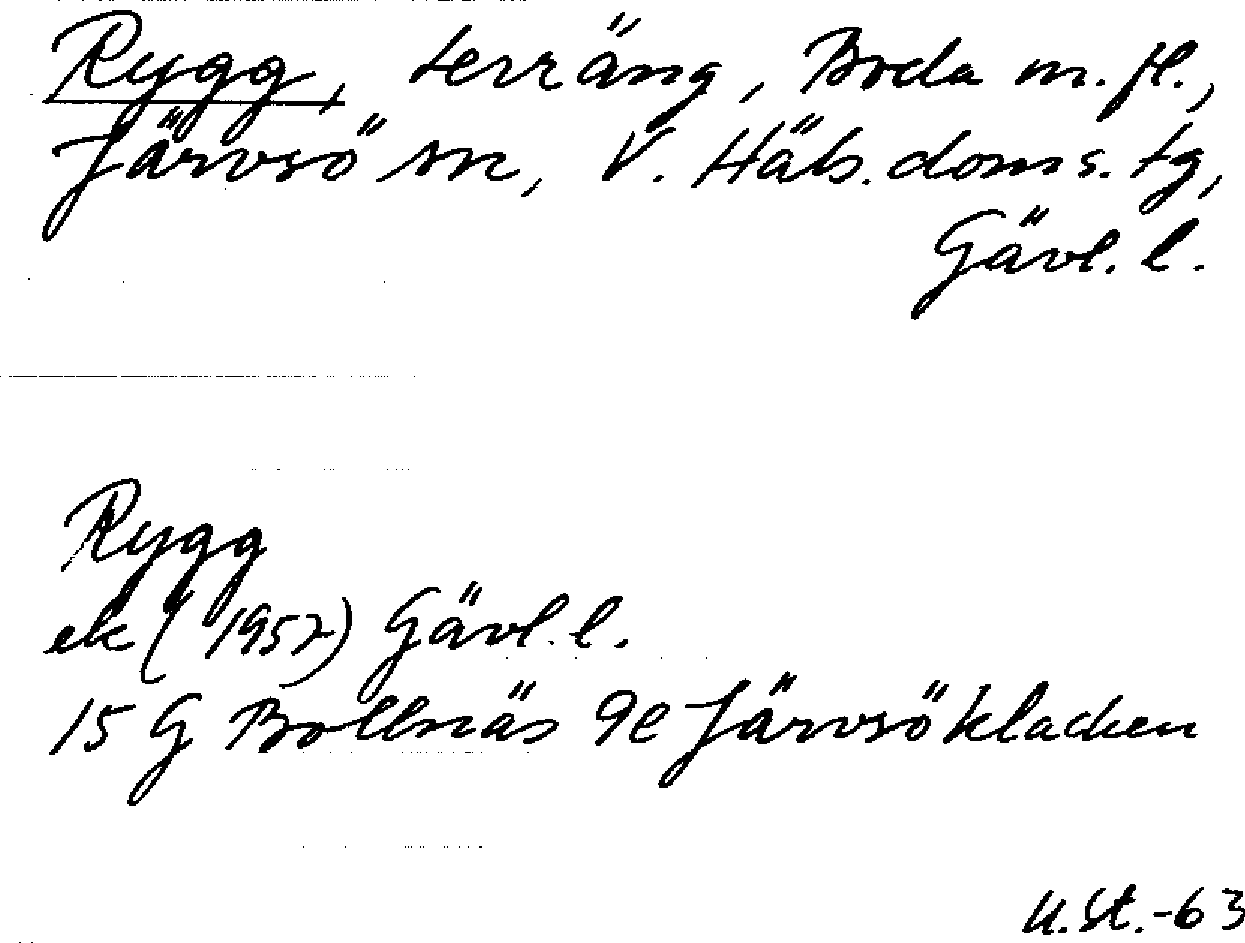 Rygg, terräng, Boda m.fl.,
Järvsö sn, V. Häls. doms. tg,
Gävl. l.
Rygg
ek (1957) Gävl. l.
15 G Bollnäs 9e Järvsökladen
U.St.-63